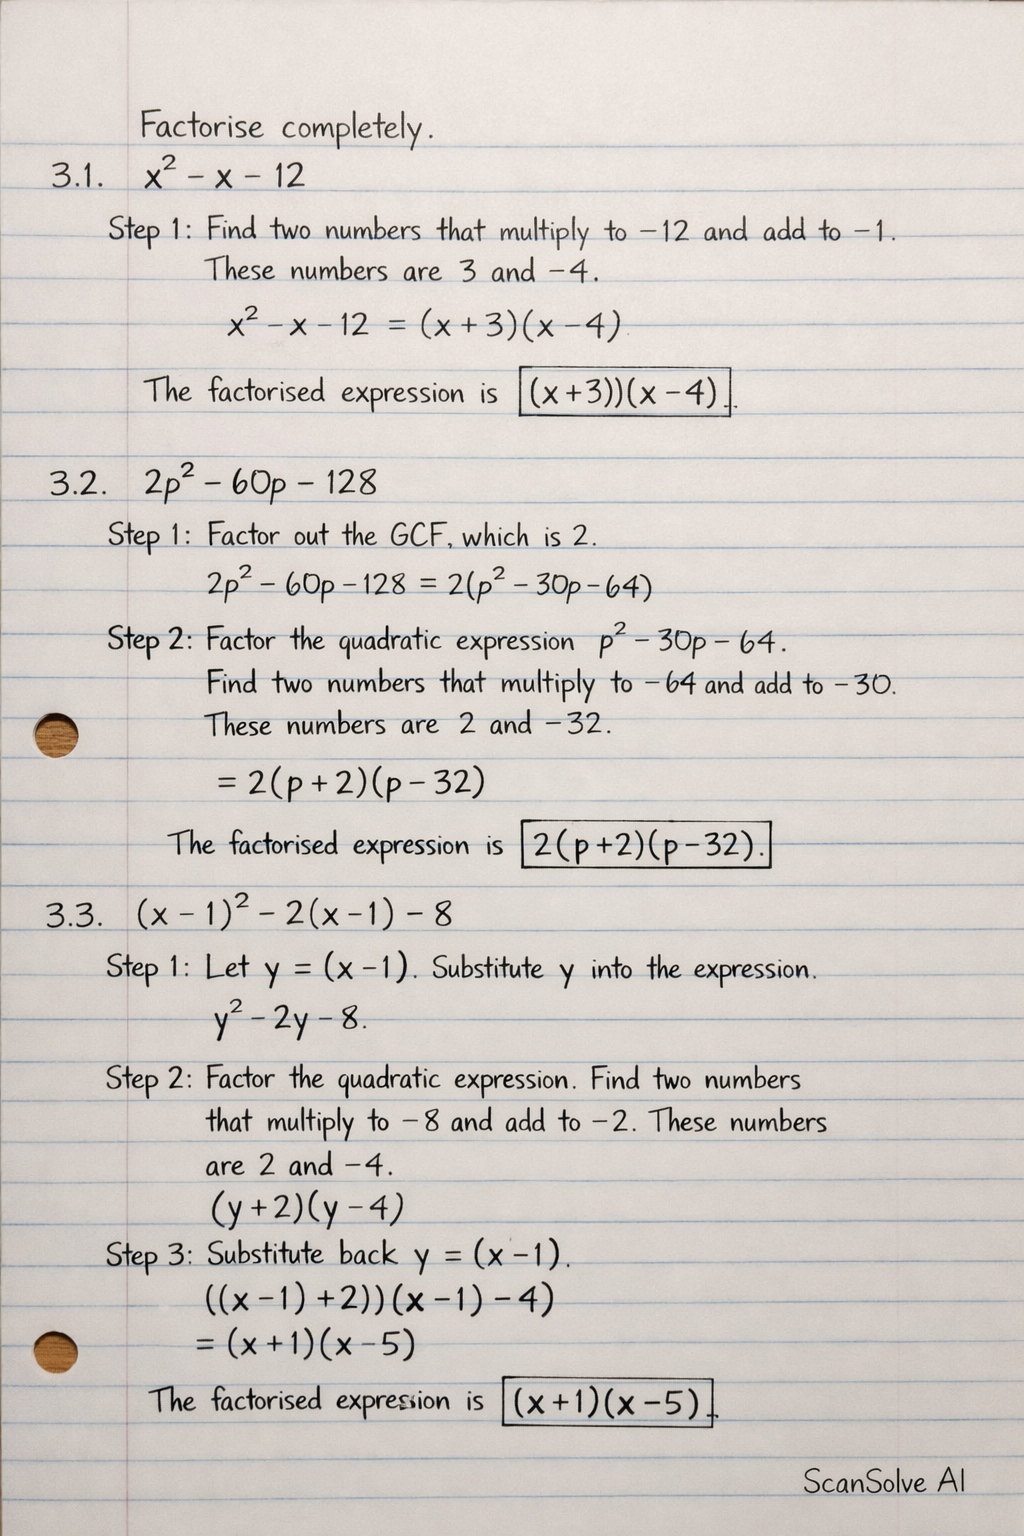 Factorise completely.
3.1. x² − x − 12
Step 1: Find two numbers that multiply to −12 and add to −1.
These numbers are 3 and −4.
x² − x − 12 = (x + 3)(x − 4)
The factorised expression is (x + 3))(x − 4).
3.2. 2p² − 60p − 128
Step 1: Factor out the GCF, which is 2.
2p² − 60p − 128 = 2(p² − 30p − 64)
Step 2: Factor the quadratic expression p² − 30p − 64.
Find two numbers that multiply to −64 and add to −30.
These numbers are 2 and −32.
= 2(p + 2)(p − 32)
The factorised expression is 2(p + 2)(p − 32).
3.3. (x − 1)² − 2(x − 1) − 8
Step 1: Let y = (x − 1). Substitute y into the expression.
y² − 2y − 8.
Step 2: Factor the quadratic expression. Find two numbers
that multiply to −8 and add to −2. These numbers
are 2 and −4.
(y + 2)(y − 4)
Step 3: Substitute back y = (x − 1).
((x − 1) + 2))(x − 1) − 4)
= (x + 1)(x − 5)
The factorised expression is (x + 1)(x − 5).
ScanSolve AI